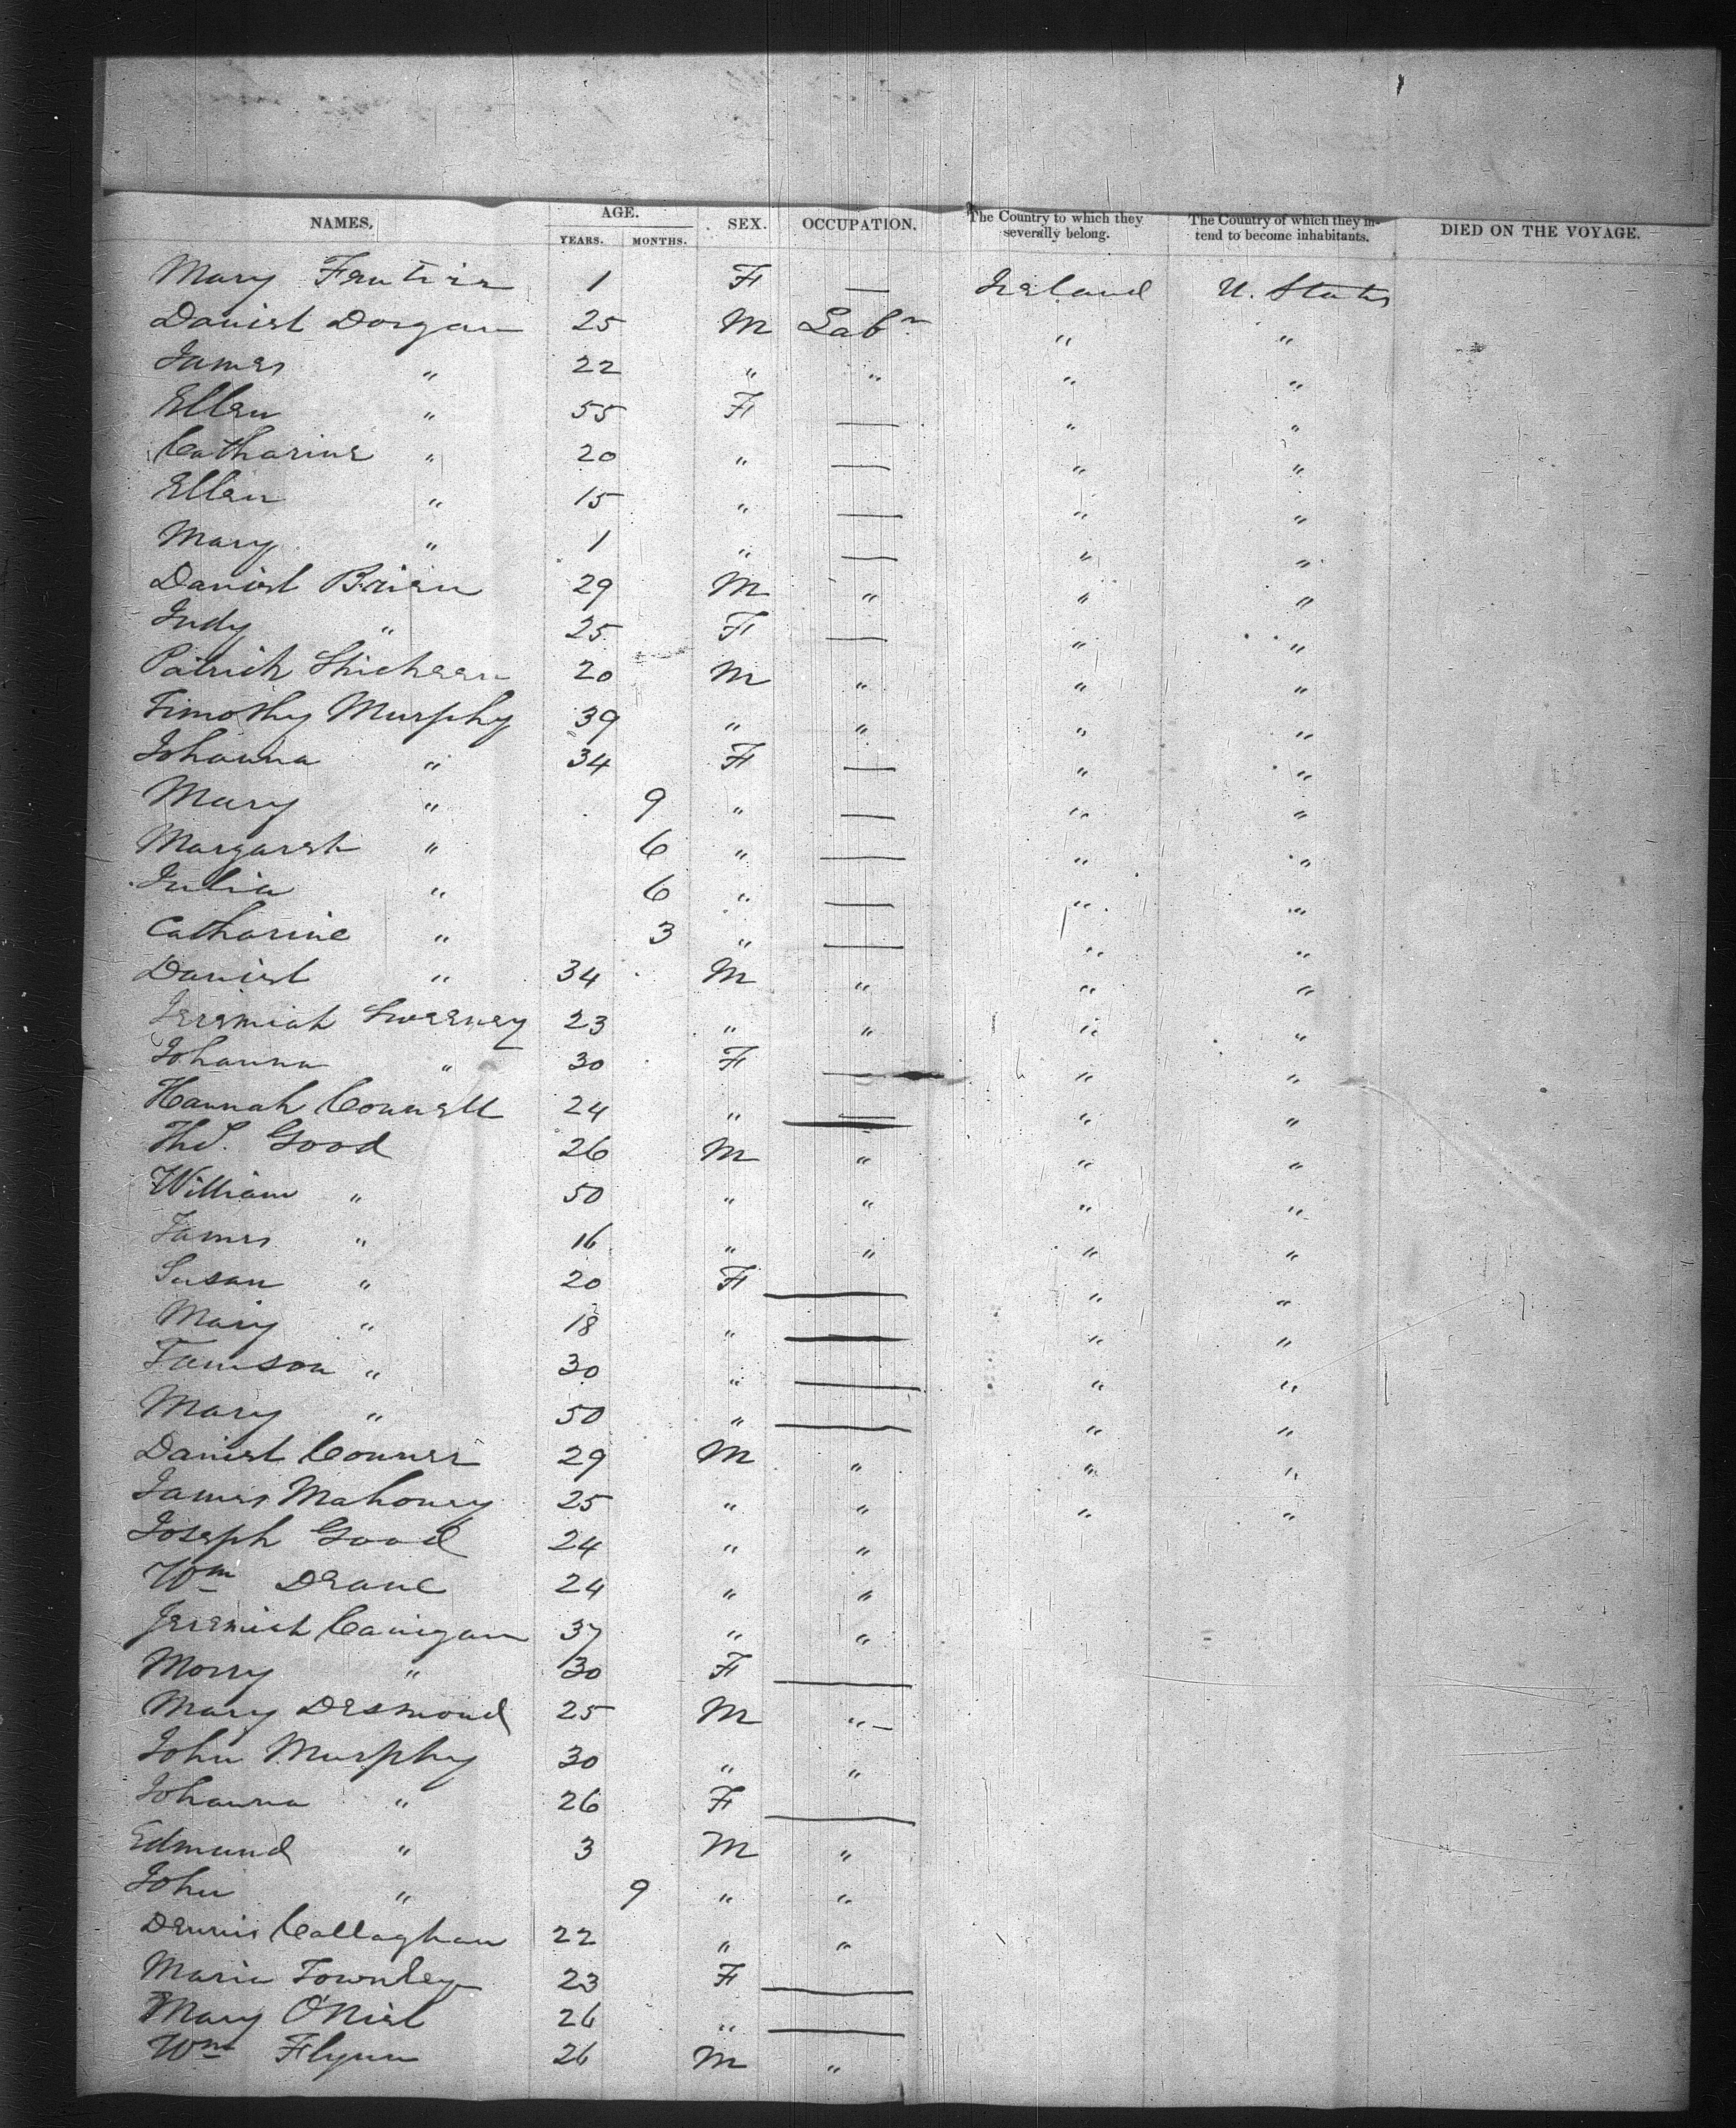 NAMES. AGE. SEX. OCCUPATION. The Country to which they severally belong. The Country of which they intend to become inhabitants. DIED ON THE VOYAGE.
YEARS. MONTHS.
Mary 1 F — Ireland U. States
Daniel Dorgan 25 M Labr " "
James " 22 " " " "
Ellen " 55 F — " "
Catharine " 20 " — " "
Ellen " 15 " — " "
Mary " 1 " — " "
Daniel Brien 29 M " " "
Judy " 25 F — " "
Patrick Shichaan 20 M " " "
Timothy Murphy 39 " " " "
Johanna " 34 F — " "
Mary " 9 " — " "
Margaret " 6 " — " "
Julia " 6 " — " "
Catharine " 3 " — " "
Daniel " 34 M " " "
Jeremiah Sweeney 23 " " " "
Johanna " 30 F — " "
Hannah Connell 24 " — " "
Thos. Good 26 M " " "
William " 50 " " " "
James " 16 " " " "
Susan " 20 F — " "
Mary " 18 " — " "
Tamson " 30 " — " "
Mary " 50 " — " "
Daniel Conner 29 M " " "
James Mahoney 25 " " " "
Joseph Good 24 " "
Wm Deane 24 " "
Jeremiah Canigan 37 " "
Morry " 30 F —
Mary Desmond 25 M " –
John Murphy 30 " "
Johanna " 26 F —
Edmund " 3 M "
John " 9 " "
Dennis Callaghan 22 " "
Maria Townley 23 F —
Mary O'Niel 26 " —
Wm Flynn 26 M "